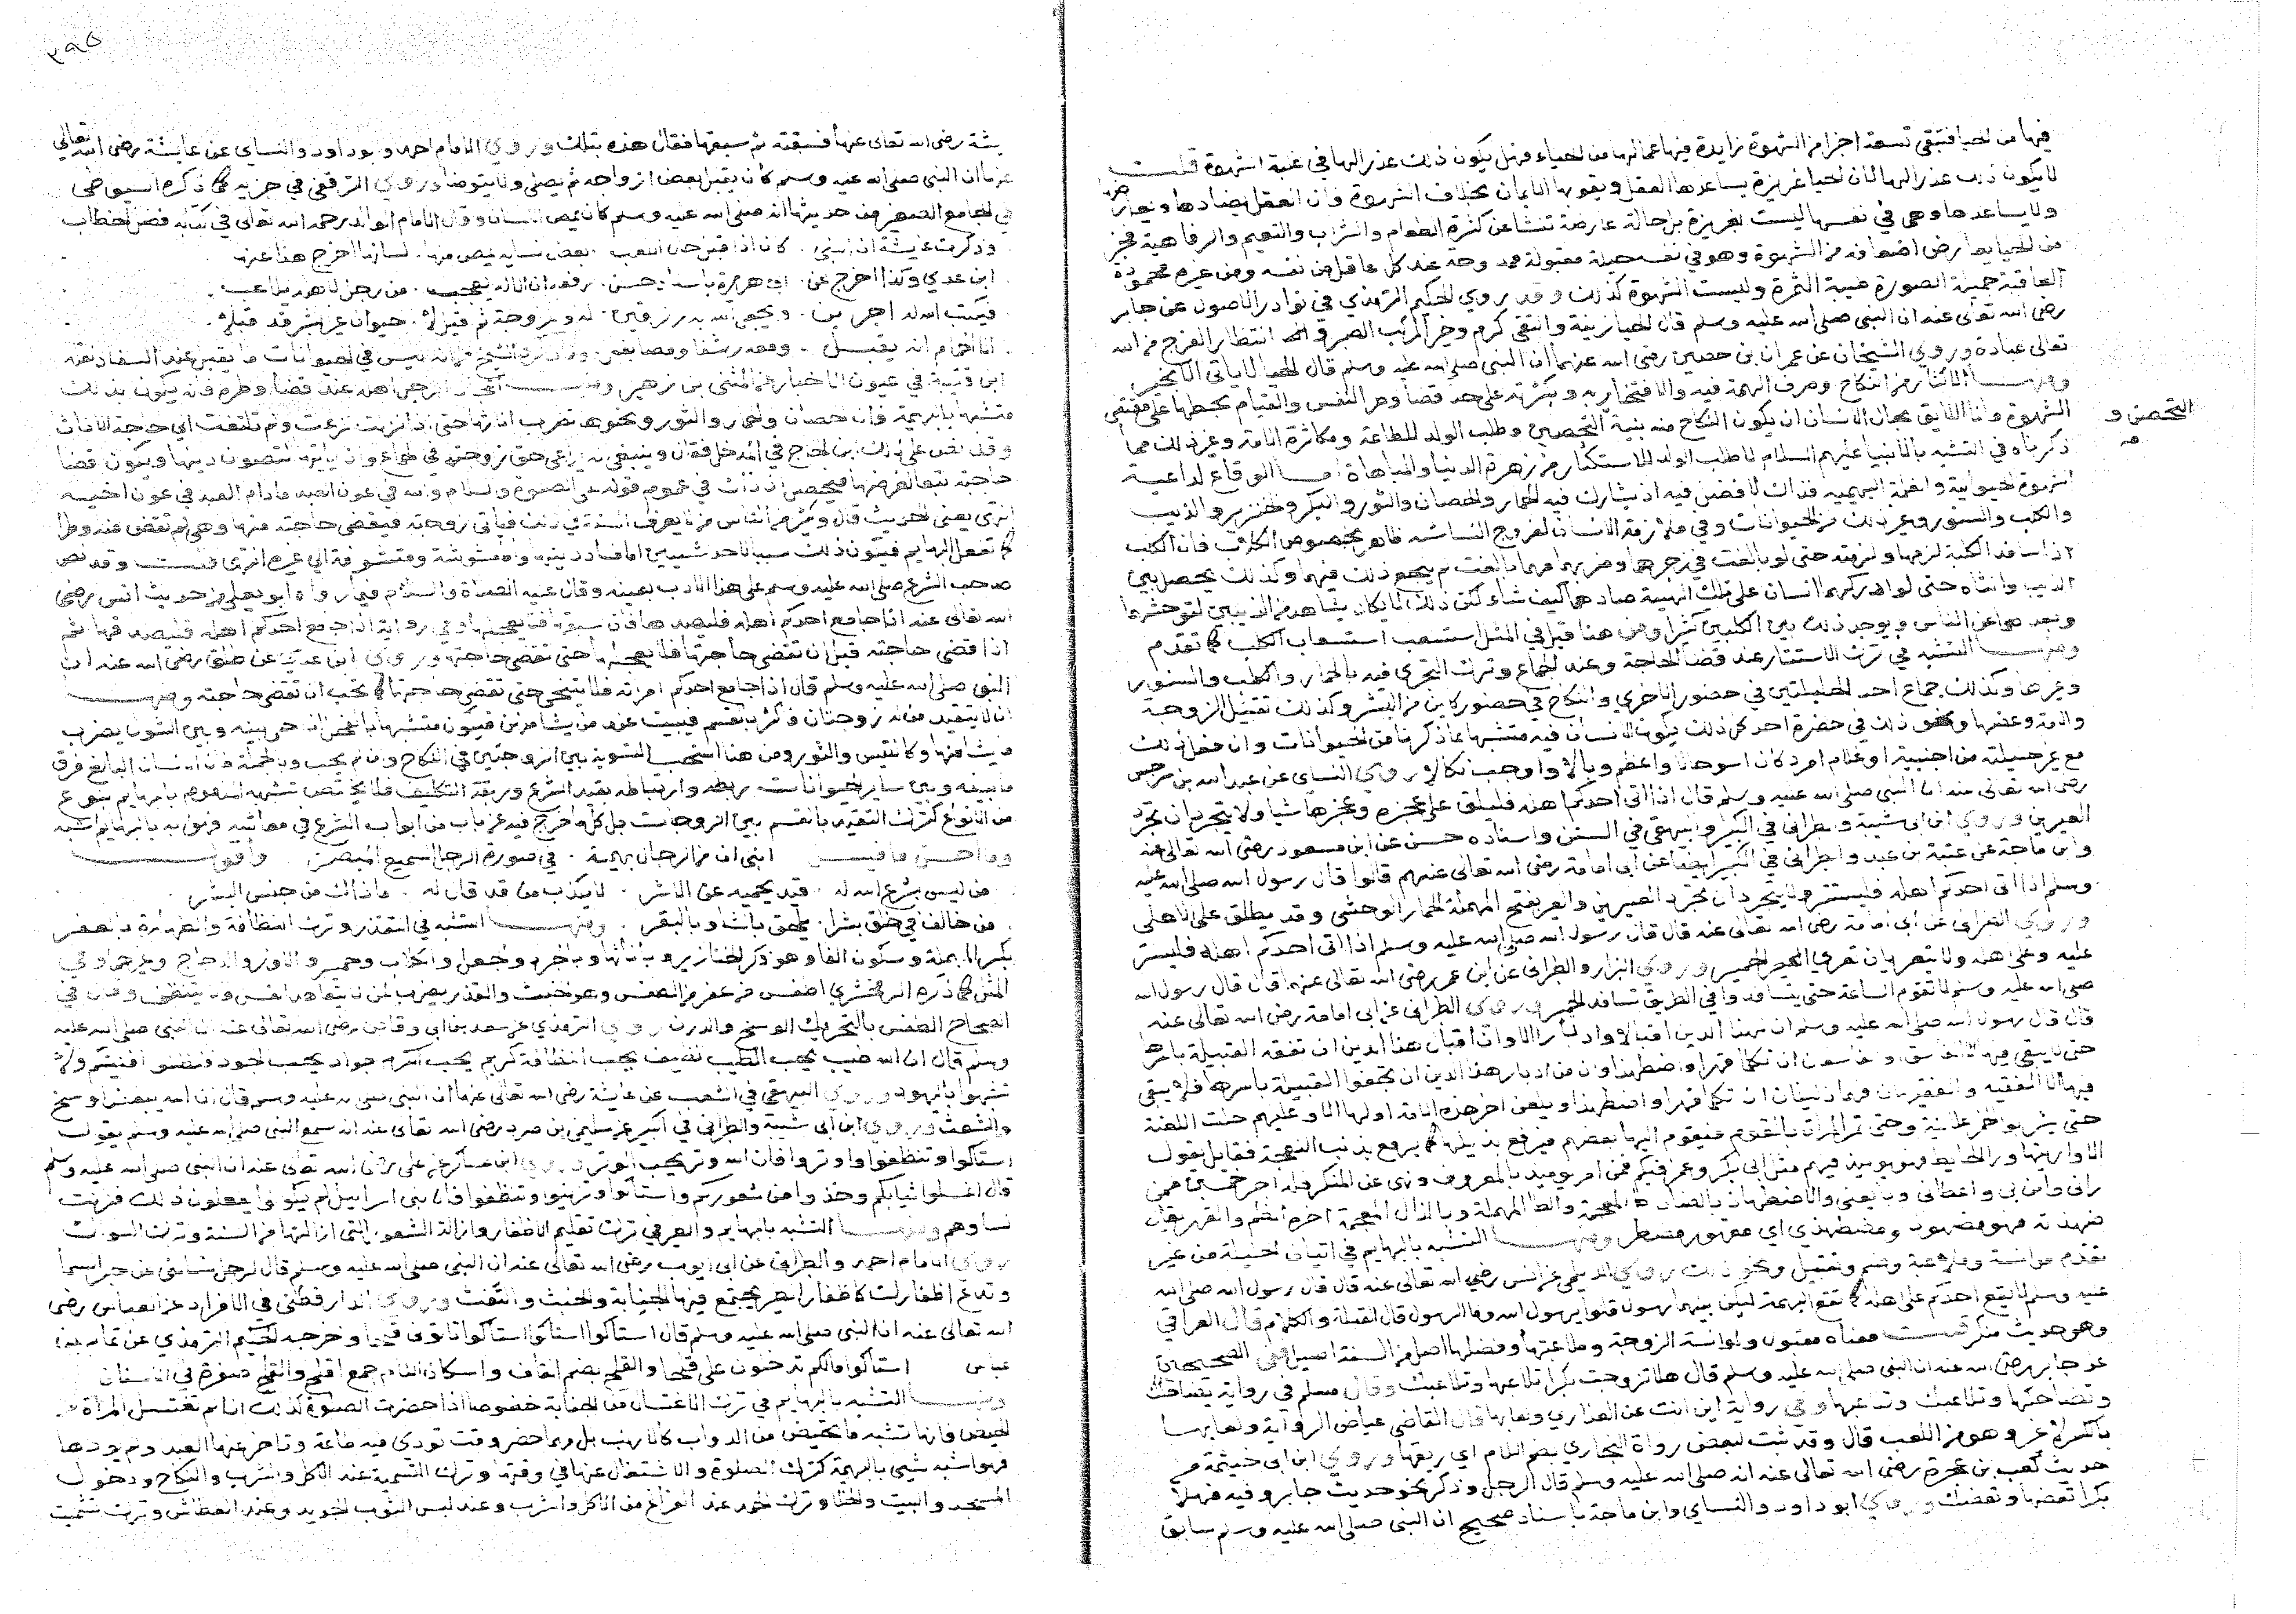 فيها من الحيا فتبقى تسعة اجزا من الشهوة زايدة فيها عما لها من الحياء فهل يكون ذلك عذرا لها في غلبة الشهوة قلت
لا يكون ذلك عذرا لها لان الحيا غريزة يساعدها العقل ويقويها الايمان بخلاف الشهوة فان العقل يضادها
ولا يساعدها وهي في نفسها ليست بغريزة بل حالة عارضة تنشا عن كثرة الطعام والشراب والتنعيم والرفاهية فجز
من الحيا يعارض اضعافه من الشهوة وهو في نفسه مقبولة عند كل عاقل من نفسه ومن غيره محمودة
العاقبة جميلة الصورة هنية الثمرة وليست الشهوة كذلك وقد روي الحكيم الترمذي في نوادر الاصول عن جابر
رضي الله تعالى عنه ان النبي صلى الله عليه وسلم قال الحيا زينة والتقى كرم وخير المركب الصبر وانتظار الفرج من الله
تعالى عبادة وروي الشيخان عن عمران بن حصين رضي الله عنهما ان النبي صلى الله عليه وسلم قال الحيا لا ياتي الا بخير
ومنها الاكثار من النكاح وصرف الهمة فيه والافتخار به وبكثرته على حد قضا وطر النفس والقيام بحظها على مقتضى
الشهوة وانما اللايق بحال الانسان ان يكون النكاح منه بنية التحصين وطلب الولد للطاعة ومكاثرة الامة وغير ذلك مما
التحصن و
ذكرناه في التشبه بالانبيا عليهم السلام لا طلب الولد للاستكثار من زهرة الدنيا والمباهاة اما الوقاع لداعية
الشهوة الحيوانية والغلمة البهيمية فذاك لا فضل فيه اذ يشارك فيه الحمار والحصان والثور والبكر والخنزير والذيب
والكلب والسنور وغير ذلك من الحيوانات وفي ملازمة الانسان لفروج النسا شبه بخصوص الكلاب فان الكلب
اذا سافد الكلبة لزمها ولزمته حتى لو بالغت في زجرها وضربها مهما بالغت لم ينجع ذلك فيهما وكذلك يحصل بين
الذيب وانثاه حتى لو ادركهما انسان على تلك الهيئة صادهما كيف شاء لكن ذلك لا يكاد يشاهد من الذيبين لتوحشهما
وبعدهما عن الناس ويوجد ذلك بين الكلبين كثيرا ومن هنا قيل في المثل استصعب استصعاب الكلب كما تقدم
ومنها التشبه في ترك الاستتار عند قضا الحاجة وعند الجماع وترك التحري فيه بالحمار والكلب والسنور
وغيرها وكذلك جماع احد الحليلتين في حضور الاخري والنكاح في حضور كاين من البشر وكذلك تقبيل الزوجة
والامة ونحو ذلك في حضرة احد كل ذلك يكون الانسان فيه متشبها بما ذكرنا من الحيوانات وان فعل ذلك
مع غير حليلة من اجنبية او غلام امرد كان اسوا حالا واعظم وبالا واوجب نكالا روي النساي عن عبد الله بن سرجس
رضي الله تعالى عنه ان النبي صلى الله عليه وسلم قال اذا اتى احدكم اهله فليلق على عجزه وعجزها شيا ولا يتجردان تجرد
العيرين وروي ابن ابي شيبة والطبراني في الكبير والبيهقي في السنن واسناده حسن عن ابن مسعود رضي الله تعالى عنه
وابن ماجة عن عتبة بن عبد والطبراني في الكبير ايضا عن ابي امامة رضي الله تعالى عنهم قالوا قال رسول الله صلى الله عليه
وسلم اذا اتى احدكم اهله فليستتر ولا يتجردان تجرد العيرين والعير بفتح المهملة الحمار الوحشي وقد يطلق على الاهلي
وروي الطبراني عن ابي امامة رضي الله تعالى عنه قال قال رسول الله صلى الله عليه وسلم اذا اتى احدكم اهله فليستتر
عليه وعلى اهله ولا يتعريان تعري الحمير وروي البزار والطبراني عن ابن عمر رضي الله تعالى عنهما قال قال رسول الله
صلى الله عليه وسلم لا تقوم الساعة حتى يتسافدوا في الطريق تسافد الحمير وروي الطبراني عن ابي امامة رضي الله تعالى عنه
قال قال رسول الله صلى الله عليه وسلم ان لهذا الدين اقبالا وادبارا الا وان اقبال هذا الدين ان تفقه القبيلة باسرها
حتى لا يبقى فيها الا الفاسق او الفاسقان ان تكلما قهرا واضطهدا وان من ادبار هذا الدين ان تجفوا القبيلة باسرها فلا يبقى
فيها الا الفقيه والفقيهان فهما ذليلان ان تكلما قهرا واضطهدا ويلعن اخر هذه الامة اولها الا وعليهم حلت اللعنة
حتى يشربوا الخمر علانية وحتى تمر المراة بالقوم فيقوم اليها بعضهم فيرفع بذيلها كما يرفع بذنب النعجة فقايل يقول
الا واريتها ورا الحايط فهو يوميذ فيهم مثل ابي بكر وعمر فيكم فمن امر يوميذ بالمعروف ونهى عن المنكر فله اجر خمسين ممن
راني وامن بي واطاعني وبايعني والاضطهاد بالضاد المعجمة والطا المهملة وبالدال اخره الظلم والقهر يقال
ضهده فهو مضهود ومضطهد اي مقهور مضطر ومنها التشبه بالبهايم في اتيان الحليلة من غير
تقدم موانسة وملاعبة وضم وتقبيل ونحو ذلك روي الديلمي عن انس رضي الله تعالى عنه قال قال رسول الله صلى الله
عليه وسلم لا يقع احدكم على اهله كما تقع البهيمة ليكن بينهما رسول قالوا يا رسول الله وما الرسول قال القبلة والكلام قال العراقي
وهو حديث منكر قلت معناه مقبول ولموانسة الزوجة وملاعبتها وفضلها اصل من السنة اصيل ففي الصحيحين
عن جابر رضي الله عنه ان النبي صلى الله عليه وسلم قال هلا تزوجت بكرا تلاعبها وتلاعبك وقال مسلم في رواية تضاحكك
وتضاحكها وتلاعبك وتلاعبها وفي رواية اين انت عن العذاري ولعابها قال القاضي عياض الرواية ولعابها
بالكسر لا غير وهو من اللعب قال وقد ثبت لبعض رواة البخاري بضم اللام اي ريقها وروي ابن ابي خيثمة من
حديث كعب بن عجرة رضي الله تعالى عنه انه صلى الله عليه وسلم قال الرجل وذكر نحو حديث جابر وفيه فهلا
بكرا تعضها وتعضك وروي ابو داود والنساي وابن ماجة باسناد صحيح ان النبي صلى الله عليه وسلم سابق
٣٩٥
يشة رضي الله تعالى عنها فسبقته ثم سبقها فقال هذه بتلك وروي الامام احمد وابو داود والنساي عن عايشة رضي الله تعالى
عنها ان النبي صلى الله عليه وسلم كان يقبل بعض ازواجه ثم يصلي ولا يتوضا وروي الترقفي في جزيه كما ذكره السيوطي
في الجامع الصغير من حديثها انه صلى الله عليه وسلم كان يمص اللسان وقال الامام الوالد رحمه الله تعالى في كتابه فصل الخطاب
وذكرت عايشة ان النبي كان اذا قبل حال اللعب بعض نسايه يمص منها لسانها اخرج هذا عنها
ابن عدي وكذا اخرج عن ابي هريرة باسناد حسن رفعه ان الاله يعجب من رجل لاهله يلاعب
فيكتب الله له اجرين
انا الحمام انه يقبل
ابن قتيبة في عيون الاخبار عن المثنى بن زهير ومنها الرجل اهله عند قضا وطره فانه يكون بذلك
متشبها بالبهيمة فان الحصان والحمار والثور ونحوها تضرب اناثها حتى اذا نزلت نزعت ولم تلتفت الي حاجة الاناث
وقد نص على ذلك ابن الحاج في المدخل فقال وينبغي له ان يراعي حق زوجته في الجماع وان ياتيها لتصون دينها ويكون قضا
حاجته تبعا لغرضها فيحصل اذ ذاك في عموم قوله عليه الصلوة والسلام والله في عون العبد ما دام العبد في عون اخيه
انتهى يعني الحديث قال وكثير من الناس من لا يعرف السنة في ذلك فياتي زوجته فيقضي حاجته منها وهي لم تقض منه وطرا
كما تفعل البهايم فيكون ذلك سببا لاحد شيين اما فساد دينها واما تبقى متشوشة ومتشوفة الي غيره انتهى قلت وقد نص
صاحب الشرع صلى الله عليه وسلم على هذا الادب بعينه وقال عليه الصلاة والسلام فيما رواه ابو يعلى من حديث انس رضي
الله تعالى عنه اذا جامع احدكم اهله فليصدقها فان سبقها فلا يعجلها وفي رواية اذا جامع احدكم اهله فليصدقها ثم
اذا قضى حاجته قبل ان تقضي حاجتها فلا يعجلها حتى تقضي حاجتها وروي ابن عدي عن طلق رضي الله عنه ان
النبي صلى الله عليه وسلم قال اذا جامع احدكم امراته فلا يتنحى حتى تقضي حاجتها كما يحب ان تقضى حاجته ومنها
ان لا يتقيد من له زوجتان فاكثر بالقسم فيبيت عند من يشا منهن فيكون متشبها بالفحل بينه وبين النوق يضرب
ما يشا منها وكالتيس والثور ومن هنا استحب التسوية بين الزوجتين في النكاح وان لم يجب وبالجملة فان الانسان البالغ فرق
ما بينه وبين ساير الحيوانات ربطه وارتباطه بقيد الشرع وربقة التكليف فلا يختص تشبه المذموم بالبهايم بنوع
من الانواع كترك التقيد بالقسم بين الزوجات بل كلما خرج فيه عن باب من ابواب الشرع في معاملته فهو به بالبهايم اشبه
وما احسن ما قيل ابني ان من الرجال بهيمة في صورة الرجل السميع المبصر واقول
من ليس بشرع الله له قيد يحميه عن الاشر لا يكذب من قد قال له ما ذاك من جنس البشر
من خالف في خلق بشرا يلحق بالشاء وبالبقر ومنها التشبه في التقذر وترك النظافة والطهارة بالعفر
بكسر المهملة وسكون الفا وهو ذكر الخنازير وبانثاها وبالجرذ والجعل والكلاب والحمير والاوز والدجاج وغيرها وفي
المثل كما ذكره الزمخشري اطفس من عفر من الطفس وهو الخبث والقذر يضرب لمن لا يتعاهد نفسه ولا يتنظف وقال في
الصحاح الطفس بالتحريك الوسخ والدرن روي الترمذي عن سعد بن ابي وقاص رضي الله تعالى عنه ان النبي صلى الله عليه
وسلم قال ان الله طيب يحب الطيب نظيف يحب النظافة كريم يحب الكرم جواد يحب الجود فنظفوا افنيتكم ولا
تشبهوا باليهود وروي البيهقي في الشعب عن عايشة رضي الله تعالى عنها ان النبي صلى الله عليه وسلم قال ان الله يبغض الوسخ
والشعث وروي ابن ابي شيبة والطبراني في الكبير عن سليمان بن صرد رضي الله تعالى عنه انه سمع النبي صلى الله عليه وسلم يقول
استاكوا وتنظفوا واوتروا فان الله وتر يحب الوتر وروي ابن عساكر عن علي رضي الله تعالى عنه ان النبي صلى الله عليه وسلم
قال اغسلوا ثيابكم وخذوا من شعوركم واستاكوا وتزينوا وتنظفوا فان بني اسرائيل لم يكونوا يفعلون ذلك فزنت
نساوهم ومنها التشبه بالبهايم والعير في ترك تقليم الاظفار وازالة الشعور التي ازالتها من السنة وترك السواك
روي الامام احمد والطبراني عن ابي ايوب رضي الله تعالى عنه ان النبي صلى الله عليه وسلم قال لرجل سالني عن خبر السما
وتدع اظفارك كاظفار الطير يجتمع فيها الجنابة والخبث والتفث وروي الدارقطني في الافراد عن العباس رضي
الله تعالى عنه ان النبي صلى الله عليه وسلم قال استاكوا استاكوا استاكوا لا تاتوني قلحا وخرجه الحكيم الترمذي عن تمام بن
عباس استاكوا ما لكم تدخلون علي قلحا والقلح بضم القاف واسكان اللام جمع اقلح والقلح صفرة في الاسنان
ومنها التشبه بالبهايم في ترك الاغتسال من الجنابة خصوصا اذا حضرت الصلوة كذلك اذا لم تغتسل المراة من
الحيض فانها تشبه ما يحيض من الدواب كالارنب بل ربما حضر وقت تودي فيه طاعة وتاخر عنها العبد ولم يودها
فهو اشبه شي بالبهيمة كترك الصلوة والاشتغال عنها في وقتها وترك التسمية عند الاكل والشرب والنكاح ودخول
المسجد والبيت والخلا وترك الحمد عند الفراغ من الاكل والشرب وعند لبس الثوب الجديد وعند العطاس وترك تشميت